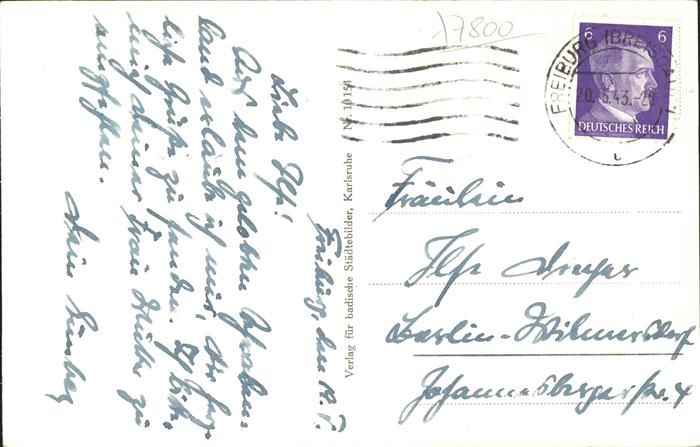 17800
6 6
DEUTSCHES REICH
FREIBURG (BREISGAU)
20.5.43.-20
Verlag für badische Städtebilder, Karlsruhe / Nr. 10 154
Freiburg, den 19. 5.
Liebe Ilse!
Auf dem gelobten Schwaben-
land erlaube ich mir, Dir herz-
liche Grüße zu senden. Ich bitte
mich Deiner Frau Mutter zu
empfehlen.
Dein
Fräulein
Ilse Dreyer
Berlin-Wilmersdorf
Johannisbergerstr. 4